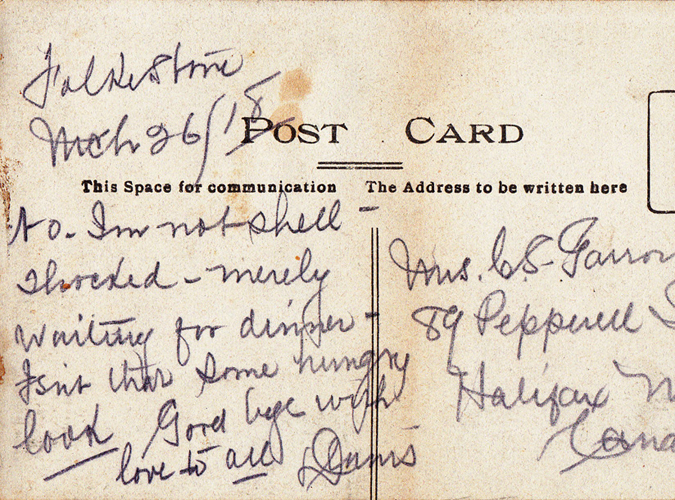 Folkestone
Mch 26/18
POST CARD
This Space for communication
The Address to be written here
No - I'm not shell-
shocked - merely
waiting for dinner -
Isn't that some hungry
look Good bye with
love to all
Mrs. C S- Farron
89 Pepperell
Halifax N
Cana